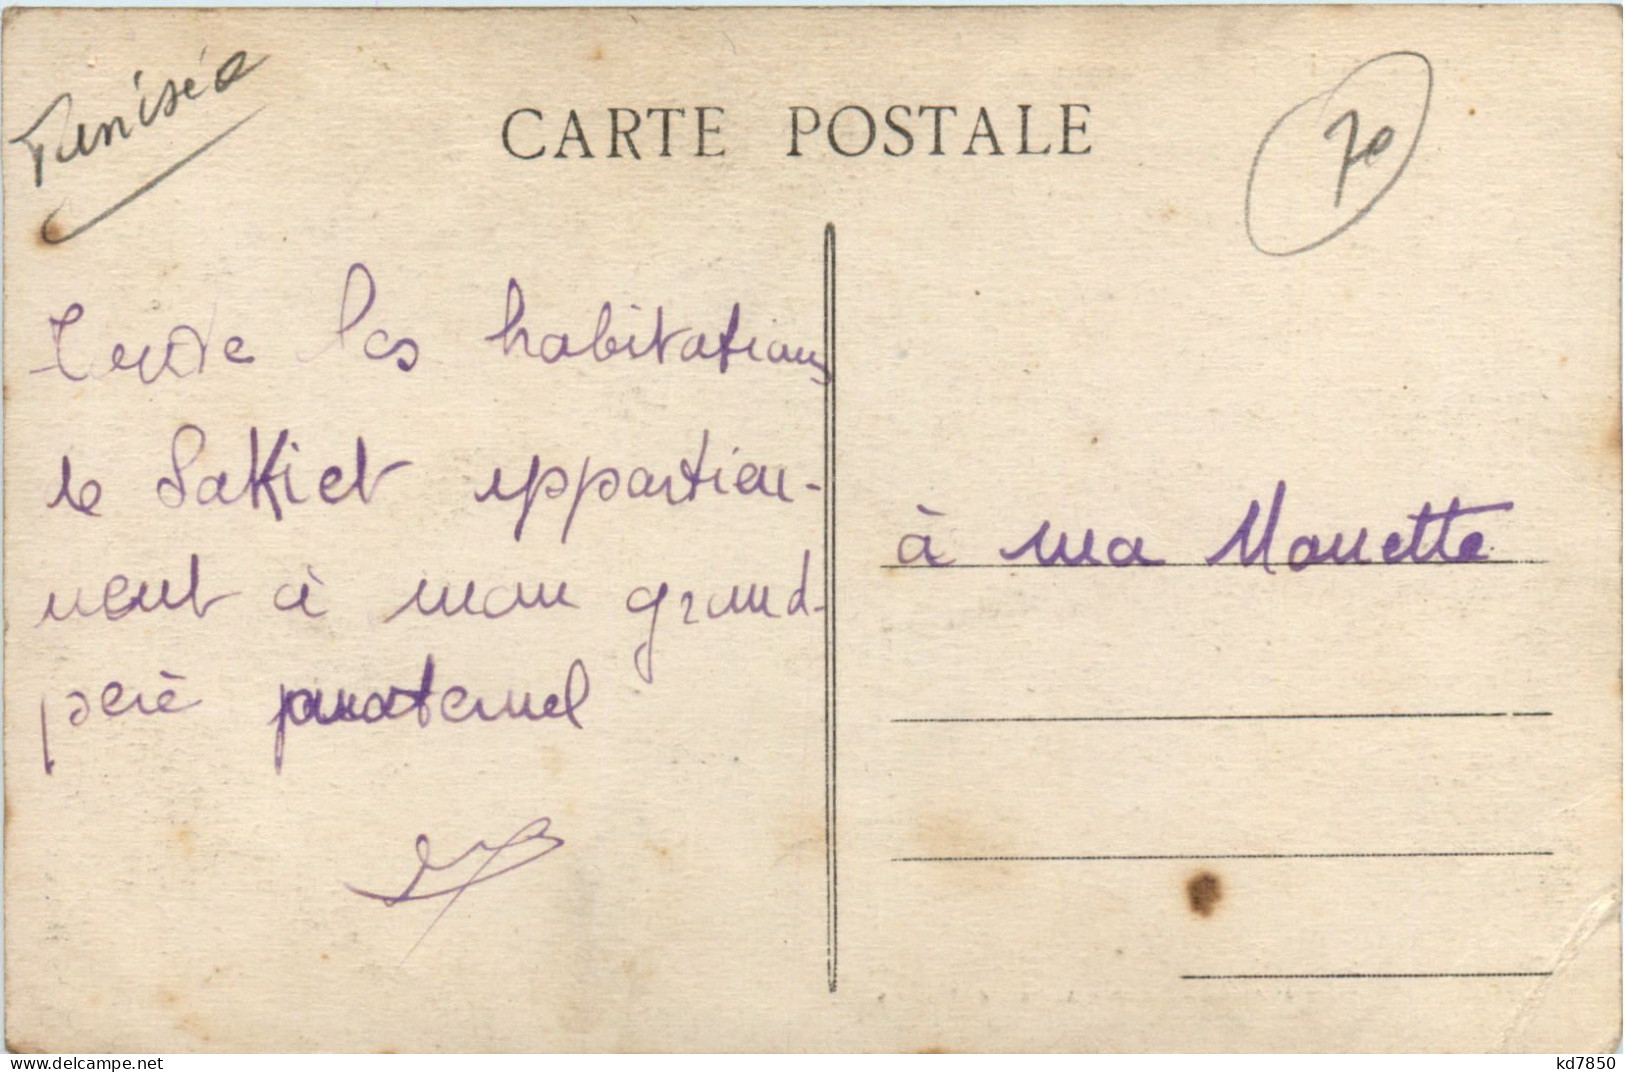 Tunisie
CARTE POSTALE
7e
les habitations
de Sakiet appartien-
nent à mon grand-
père paternel
à ma Mouette
www.delcampe.net
kd7850